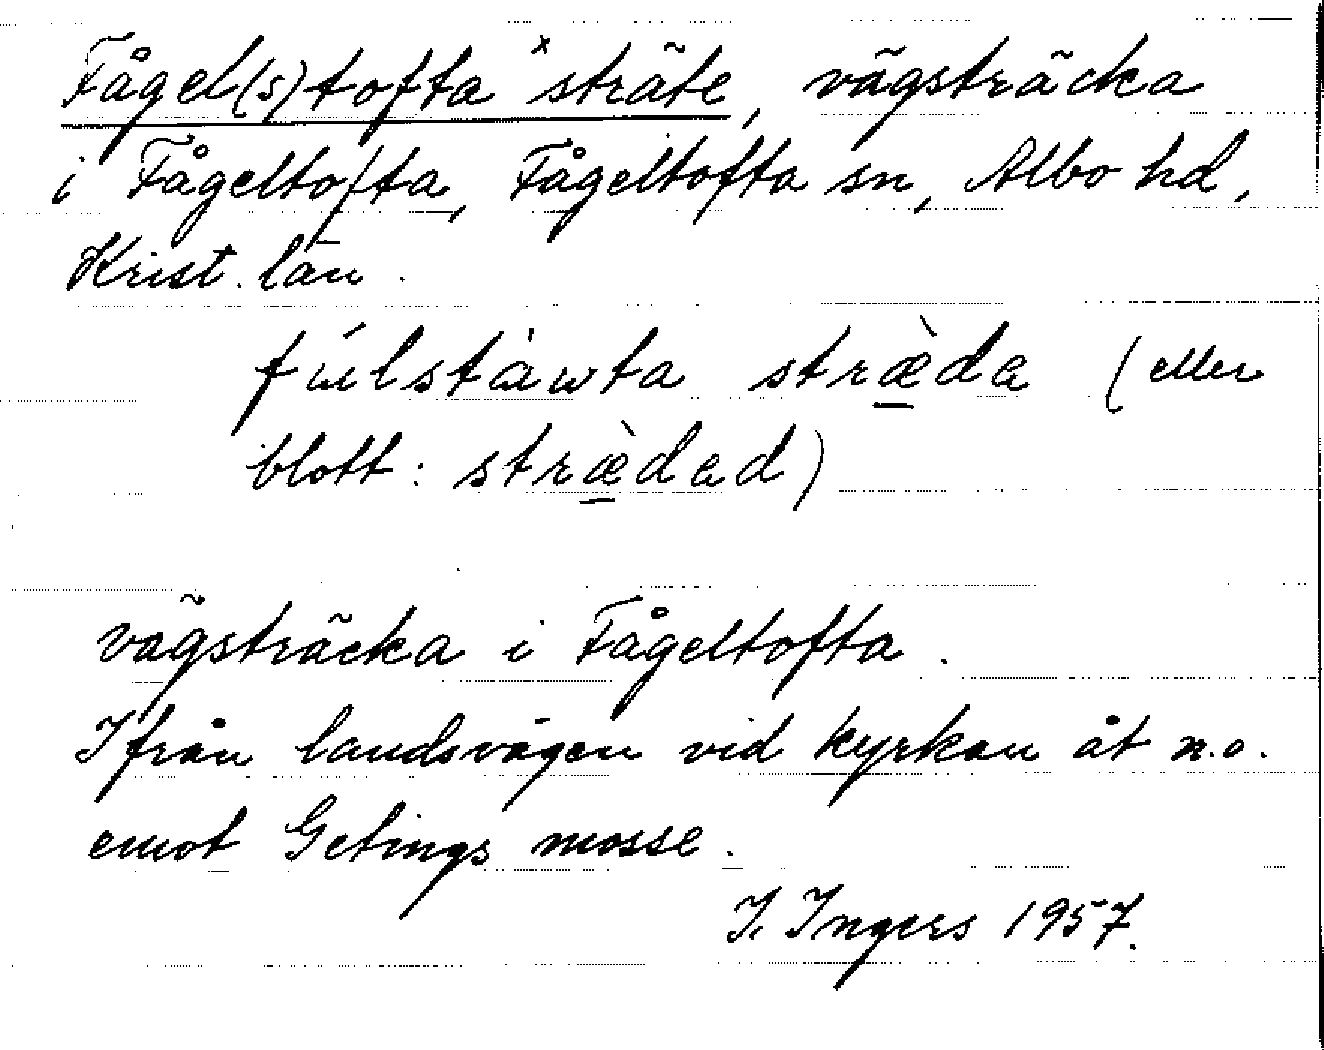 Fågel(s)tofta ˣsträte, vägsträcka
i Fågeltofta, Fågeltofta sn, Albo hd,
Krist. län.
fúlstàwta stræ̀da (eller
blott: stræ̀dad)
vägsträcka i Fågeltofta.
Ifrån landsvägen vid kyrkan åt n.o.
emot Getings mosse.
I. Ingers 1957.